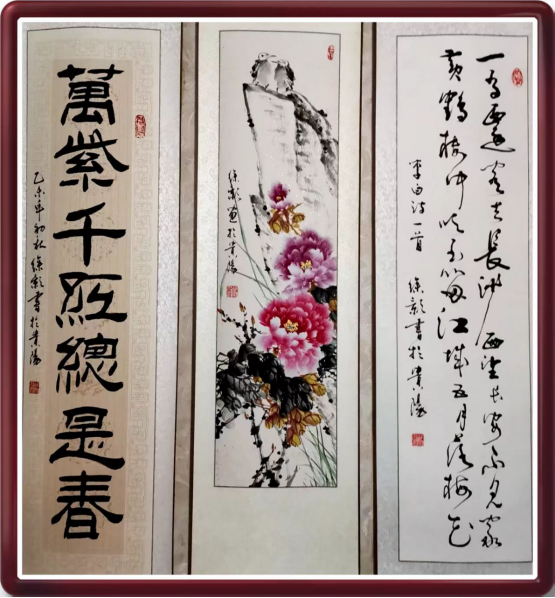 一為遷客去長沙西望長安不見家
黄鶴樓中吹玉笛江城五月落梅花
李白诗一首
徐書於貴陽
徐畫於貴陽
萬紫千紅總是春
乙未年初秋徐書於貴陽